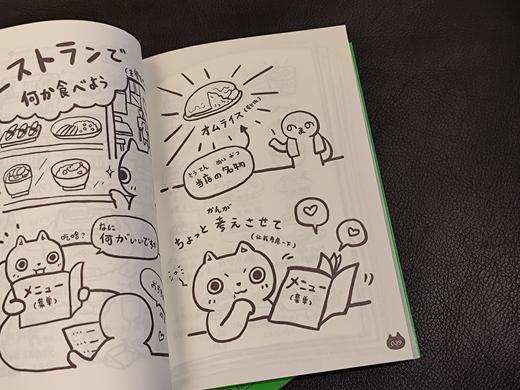 ストランで
何か食べよう
吃啥?
なに
何がいいですか
メニュー
(菜單)
オムライス
とうてん
当店の名物
かんが
ちょっと考えさせて
(讓我考慮一下)
メニュー
(菜單)
039